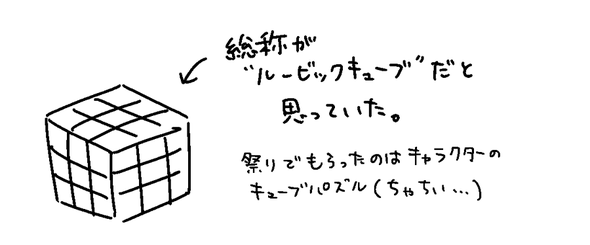 総称が
"ルービックキューブ"だと
思っていた。
祭りでもらったのはキャラクターの
キューブパズル(ちゃちい…)